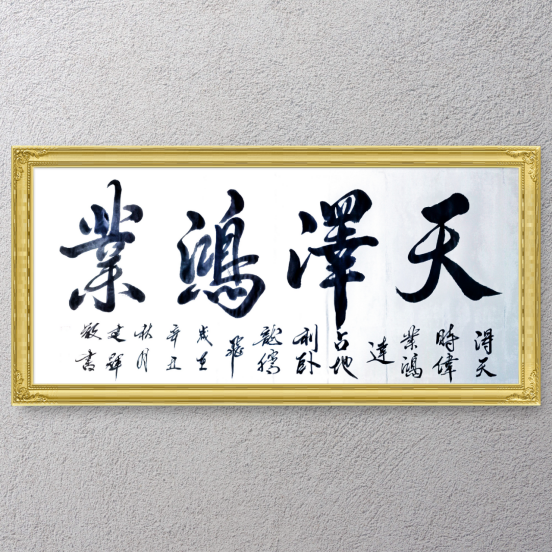 天澤鴻業
得天
時偉
業鴻
達
占地
利卧
龍騰
飛
歲在
辛丑
秋月
建
敬書